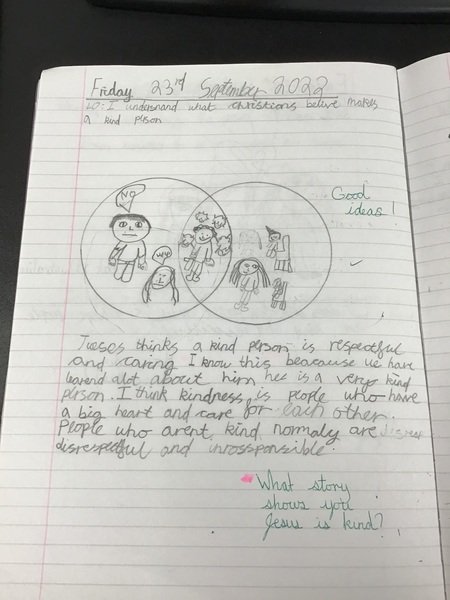 Friday 23rd September 2022
LO: I understand what christians believe makes
a kind person
NO
Good
ideas!
Jueses thinks a kind person is respectful
and caring I know this beacause we have
learend alot about him hee is a verys kind
person. I think kindness is people who have
a big heart and care for each other.
People who arent kind normaly are disresr
disrespectful and inrossponsible.
What story
shows you
Jesus is kind?